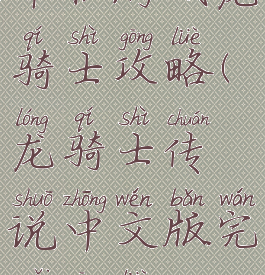 qí shì gōng lüè
骑士攻略(
lóng qí shì chuán
龙骑士传
shuō zhōng wén bǎn wán
说中文版完